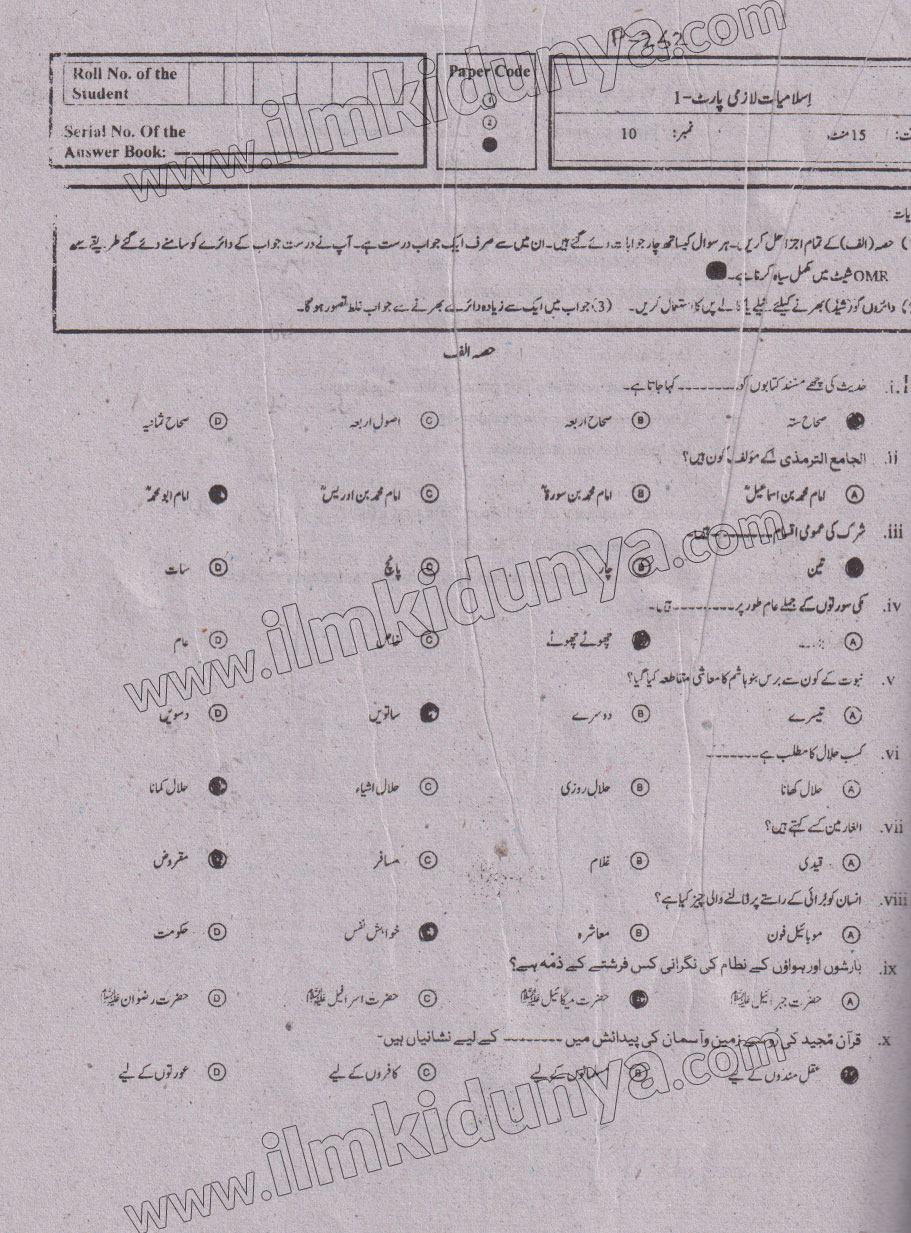 P-242
Roll No. of the
Student
Serial No. Of the
Answer Book:
Paper Code
1
2
اسلامیات لازمی پارٹ-1
15 منٹ
نمبر: 10
یات
حصہ (الف) کے تمام اجزا حل کریں۔ ہر سوال کیساتھ چار جوابات دئے گئے ہیں۔ ان میں سے صرف ایک جواب درست ہے۔ آپ نے درست جواب کے دائرے کو سامنے دئے گئے طریقے سے
OMR شیٹ میں مکمل سیاہ کرنا ہے۔
دائروں کو (شیڈ) بھرنے کیلئے نیلے یا کالے پن کا استعمال کریں۔ (3) جواب میں ایک سے زیادہ دائرے بھرنے سے جواب غلط تصور ہوگا۔
حصہ الف
1.i. حدیث کی چھے مستند کتابوں کو ------- کہا جاتا ہے۔
صحاح ستہ B صحاح اربعہ C اصول اربعہ D صحاح ثمانیہ
ii. الجامع الترمذی کے مؤلف کون ہیں؟
A امام محمد بن اسماعیلؒ B امام محمد بن سورۃؒ C امام محمد بن ادریسؒ امام ابو محمدؒ
iii. شرک کی عمومی اقسام ------- ہیں۔
تین B چار C پانچ D سات
iv. مکی سورتوں کے جملے عام طور پر ------- ہیں۔
A چھوٹے چھوٹے C D عام
v. نبوت کے کون سے برس بنو ہاشم کا معاشی مقاطعہ کیا گیا؟
A تیسرے B دوسرے ساتویں D دسویں
vi. کسب حلال کا مطلب ہے -------
A حلال کھانا B حلال روزی C حلال اشیاء حلال کمانا
vii. الغارمین کسے کہتے ہیں؟
A قیدی B غلام C مسافر مقروض
viii. انسان کو برائی کے راستے پر ڈالنے والی چیز کیا ہے؟
A موبائیل فون B معاشرہ خواہش نفس D حکومت
ix. بارشوں اور ہواؤں کے نظام کی نگرانی کس فرشتے کے ذمّہ ہے؟
A حضرت جبرائیل علیہ السلام حضرت میکائیل علیہ السلام C حضرت اسرافیل علیہ السلام D حضرت رضوان علیہ السلام
x. قرآن مُجید کی رُو سے زمین و آسمان کی پیدائش میں -------- کے لیے نشانیاں ہیں-
عقل مندوں کے لیے B مسلمانوں کے لیے C کافروں کے لیے D عورتوں کے لیے
www.ilmkidunya.com
www.ilmkidunya.com
www.ilmkidunya.com